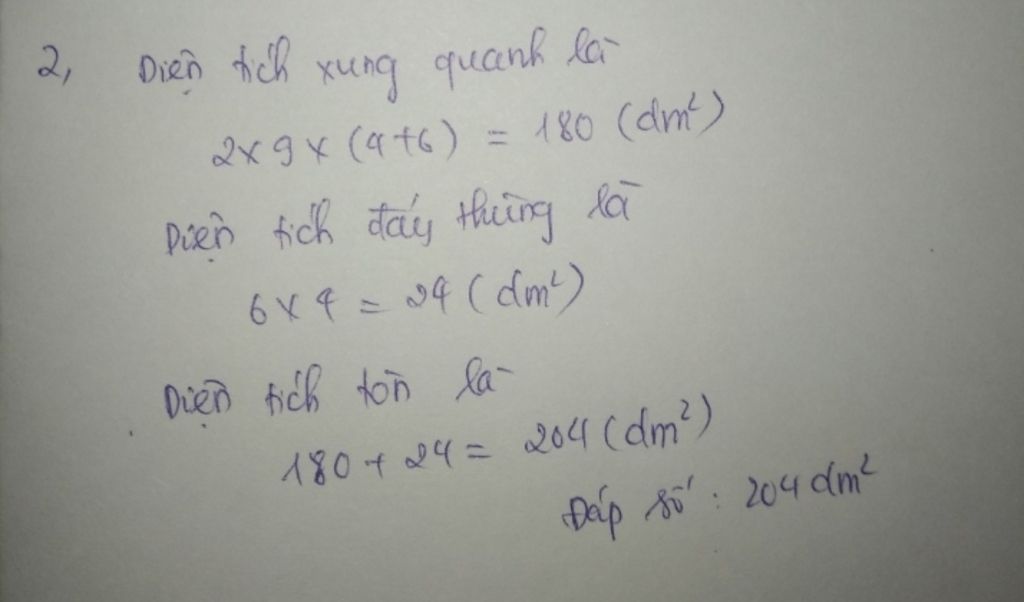 2, Diện tích xung quanh là
2 x 9 x (4+6) = 180 (dm²)
Diện tích đáy thùng là
6 x 4 = 24 (dm²)
Diện tích tôn là
180 + 24 = 204 (dm²)
Đáp số : 204 dm²